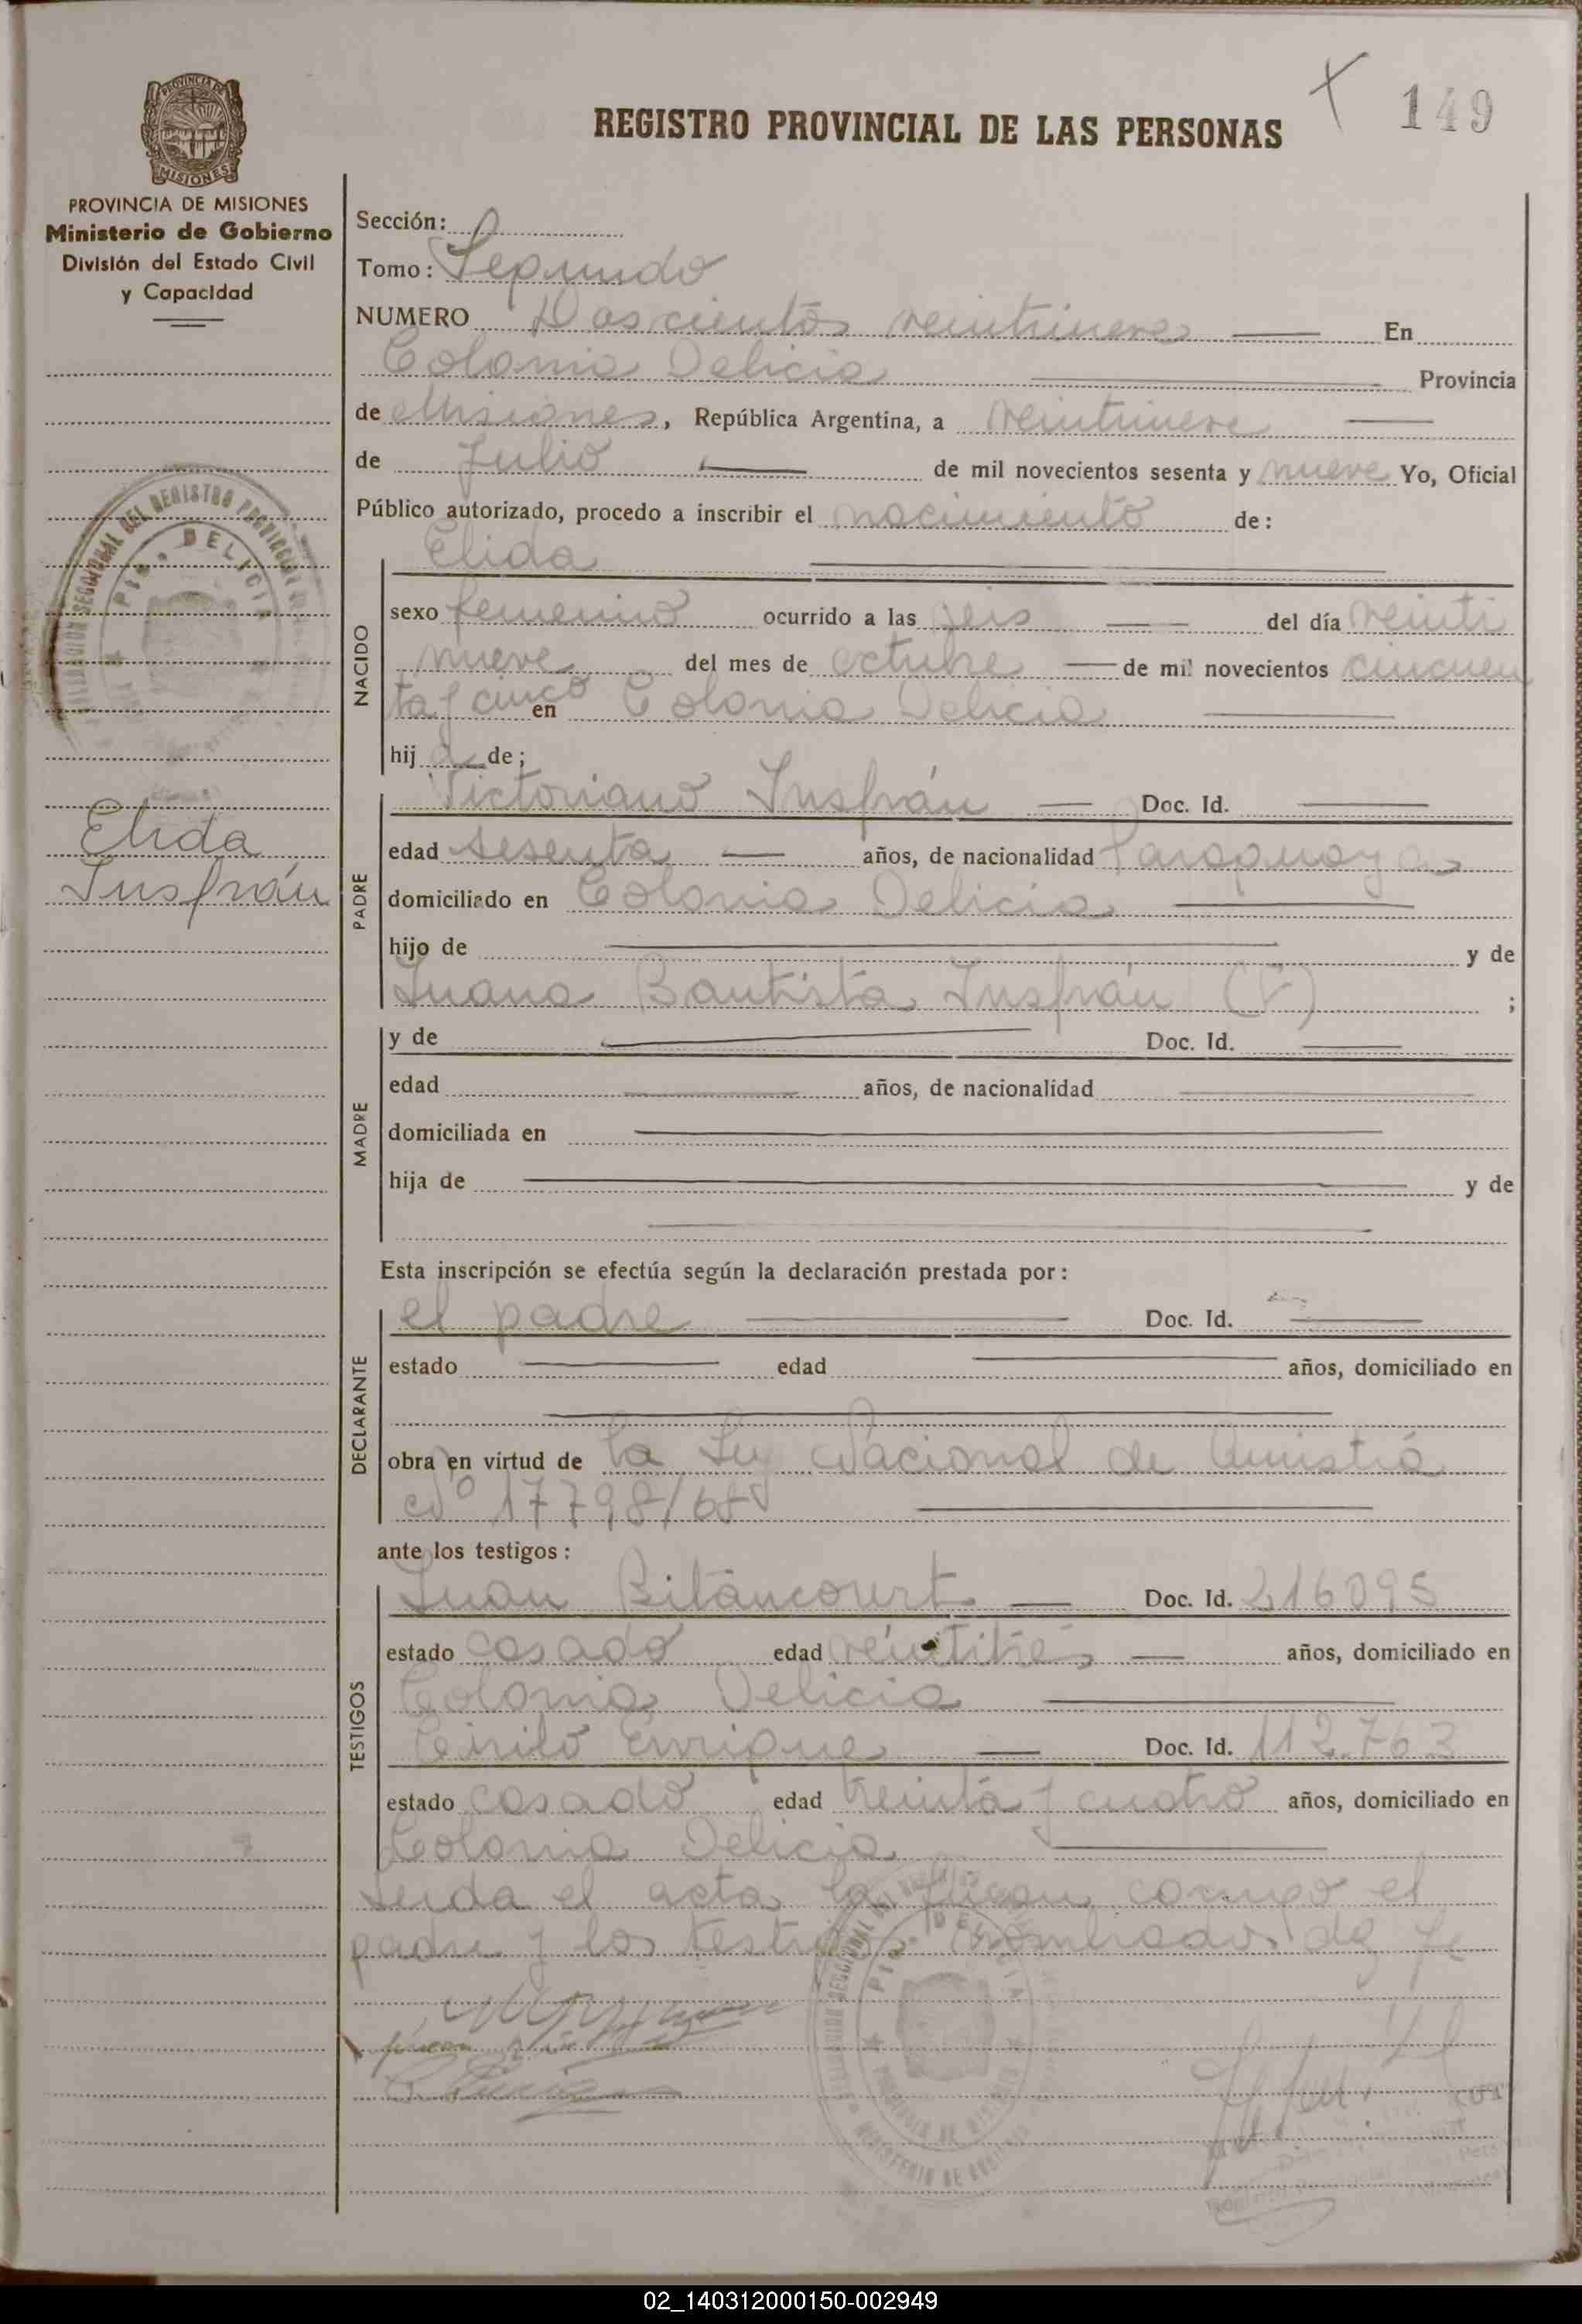 PROVINCIA DE MISIONES
PROVINCIA DE MISIONES
Ministerio de Gobierno
División del Estado Civil
y Capacidad
REGISTRO PROVINCIAL DE LAS PERSONAS
149
Sección:
Tomo: Segundo
NUMERO Doscientos veintinueve En
Colonia Delicia Provincia
de Misiones, República Argentina, a veintinueve
de Julio de mil novecientos sesenta y nueve Yo, Oficial
Público autorizado, procedo a inscribir el nacimiento de:
Elida
NACIDO
sexo femenino ocurrido a las seis del día veinti
nueve del mes de octubre de mil novecientos cincuen
ta y cinco en Colonia Delicia
hija de;
Elida
Insfrán
PADRE
Victoriano Insfrán Doc. Id.
edad sesenta años, de nacionalidad Paraguaya
domiciliado en Colonia Delicia
hijo de y de
Juana Bautista Insfrán (V) ;
MADRE
y de Doc. Id.
edad años, de nacionalidad
domiciliada en
hija de y de
Esta inscripción se efectúa según la declaración prestada por:
DECLARANTE
el padre Doc. Id.
estado edad años, domiciliado en
obra en virtud de la Ley Nacional de Amnistía
Nº 17798/68
ante los testigos:
TESTIGOS
Juan Bitancourt Doc. Id. 216095
estado casado edad veintitres años, domiciliado en
Colonia Delicia
Cirilo Enrique Doc. Id. 112.763
estado casado edad treinta y cuatro años, domiciliado en
Colonia Delicia
Leida el acta la firman conmigo el
padre y los testigos nombrados doy fe
02_140312000150-002949